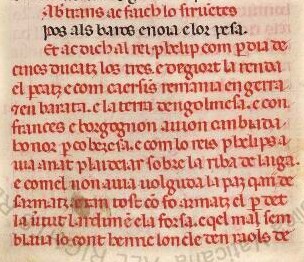 Ab trans ac fauch lo sirventes
pos als baros enoia e lor pesa.
Et ac dich al rei phelip com perdia de
cincs ducatz los tres. e de gisort la renda
el peatz e com caersins remania en gerra
7 en barata. e la terra dengolmesa. e con
frances e borgognon avion cambiada
honor per cobeesa. e com lo reis phelips a
via anat plaideiar sobre la riba de laiga
e com el non avia volguda la paz qan de
sarmatz. e tan tost co fo armatz el perdet
la vertut lardimen e la forsa. e qel mal sem
blava lo cont henric loncle den raols de